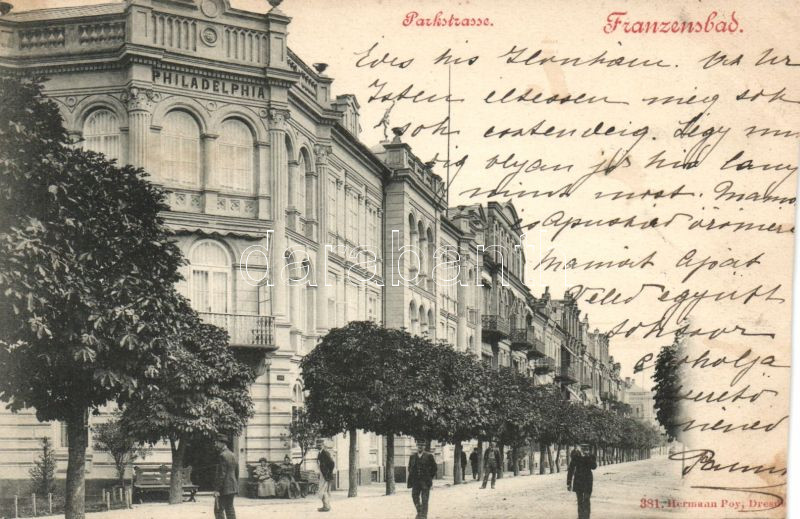 Parkstrasse. Franzensbad.
PHILADELPHIA
Édes kis Ilonkám.
Isten éltessen még sok
sok esztendeig. Légy
olyan jó kis lány
mint most. Mama
s Apuskád örömére
Mamát Apát
Veled együtt
sokszor
csókolja
szerető
nénéd
darabanth.com
381. Hermann Poy, Dresd